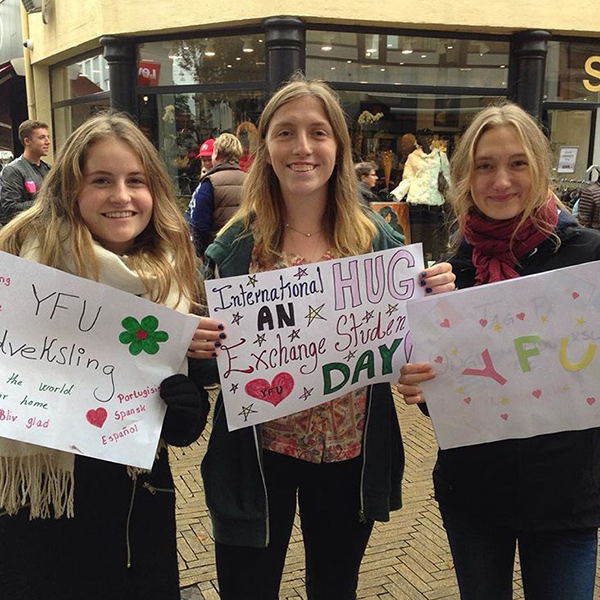 YFU
dveksling
the world
home
Bliv glad
Portugisi
Spansk
Español
International HUG
AN
Exchange Student
DAY!
YFU
YFU
S